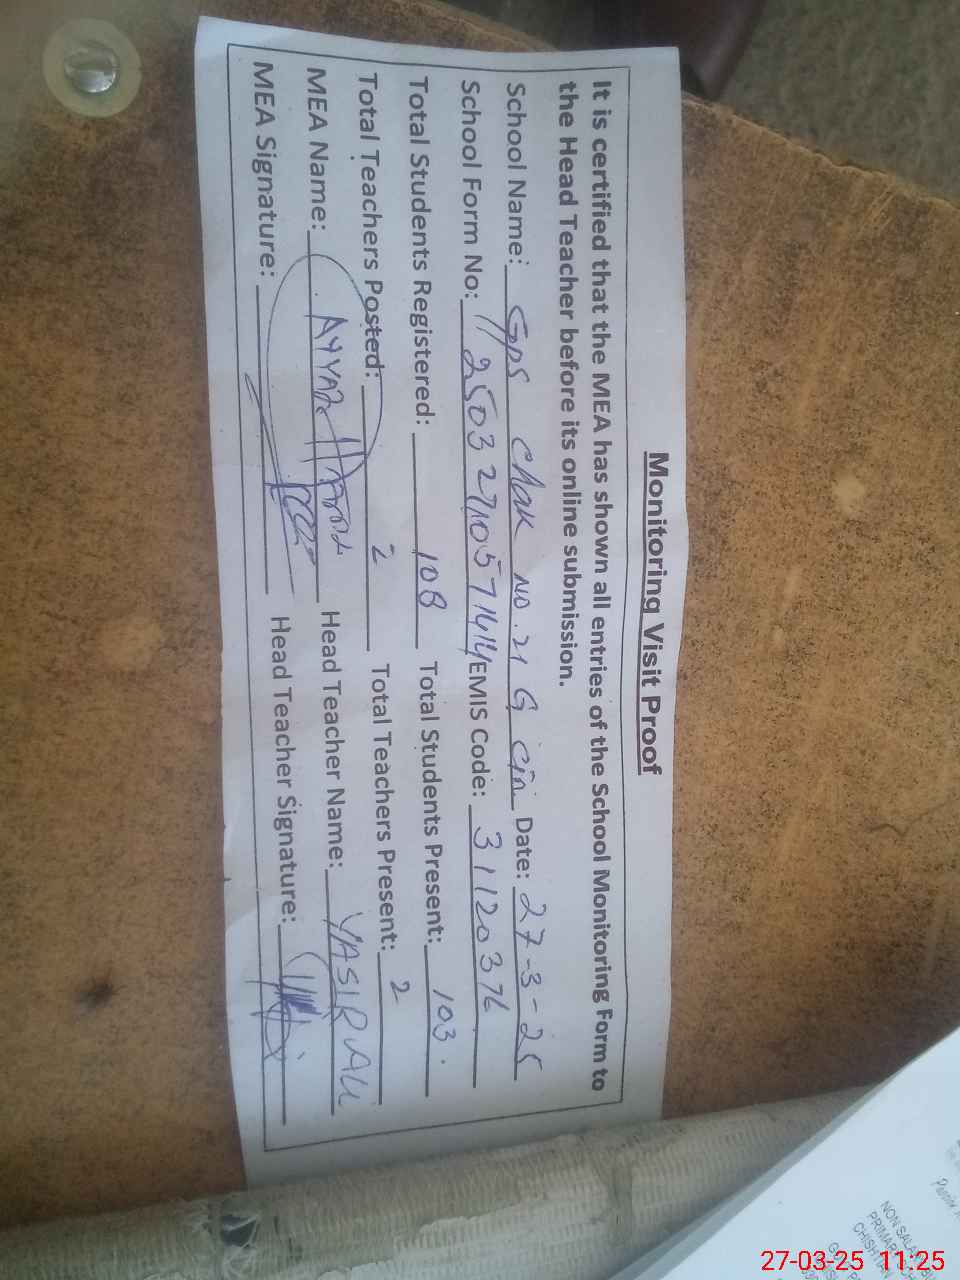 Monitoring Visit Proof
It is certified that the MEA has shown all entries of the School Monitoring Form to
the Head Teacher before its online submission.
School Name: GPS Chak No. 21 G Date: 27-3-25
School Form No: EMIS Code: 31120376
Total Students Registered: 108 Total Students Present: 103.
Total Teachers Posted: 2 Total Teachers Present: 2
MEA Name: Head Teacher Name: YASIR ALI
MEA Signature: Head Teacher Signature:
NON SAL
PRIMAR
27-03-25 11:25